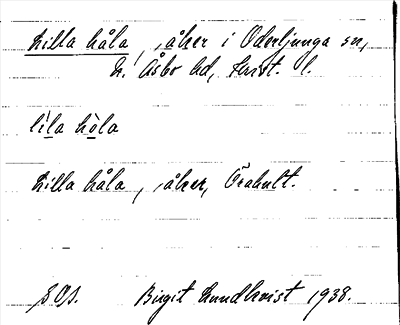 Lilla håla, åker i Oderljunga sn,
N. Åsbo hd, Krist. l.
lila hola
Lilla håla, åker, Örahult.
Birgit Lundkvist 1938.